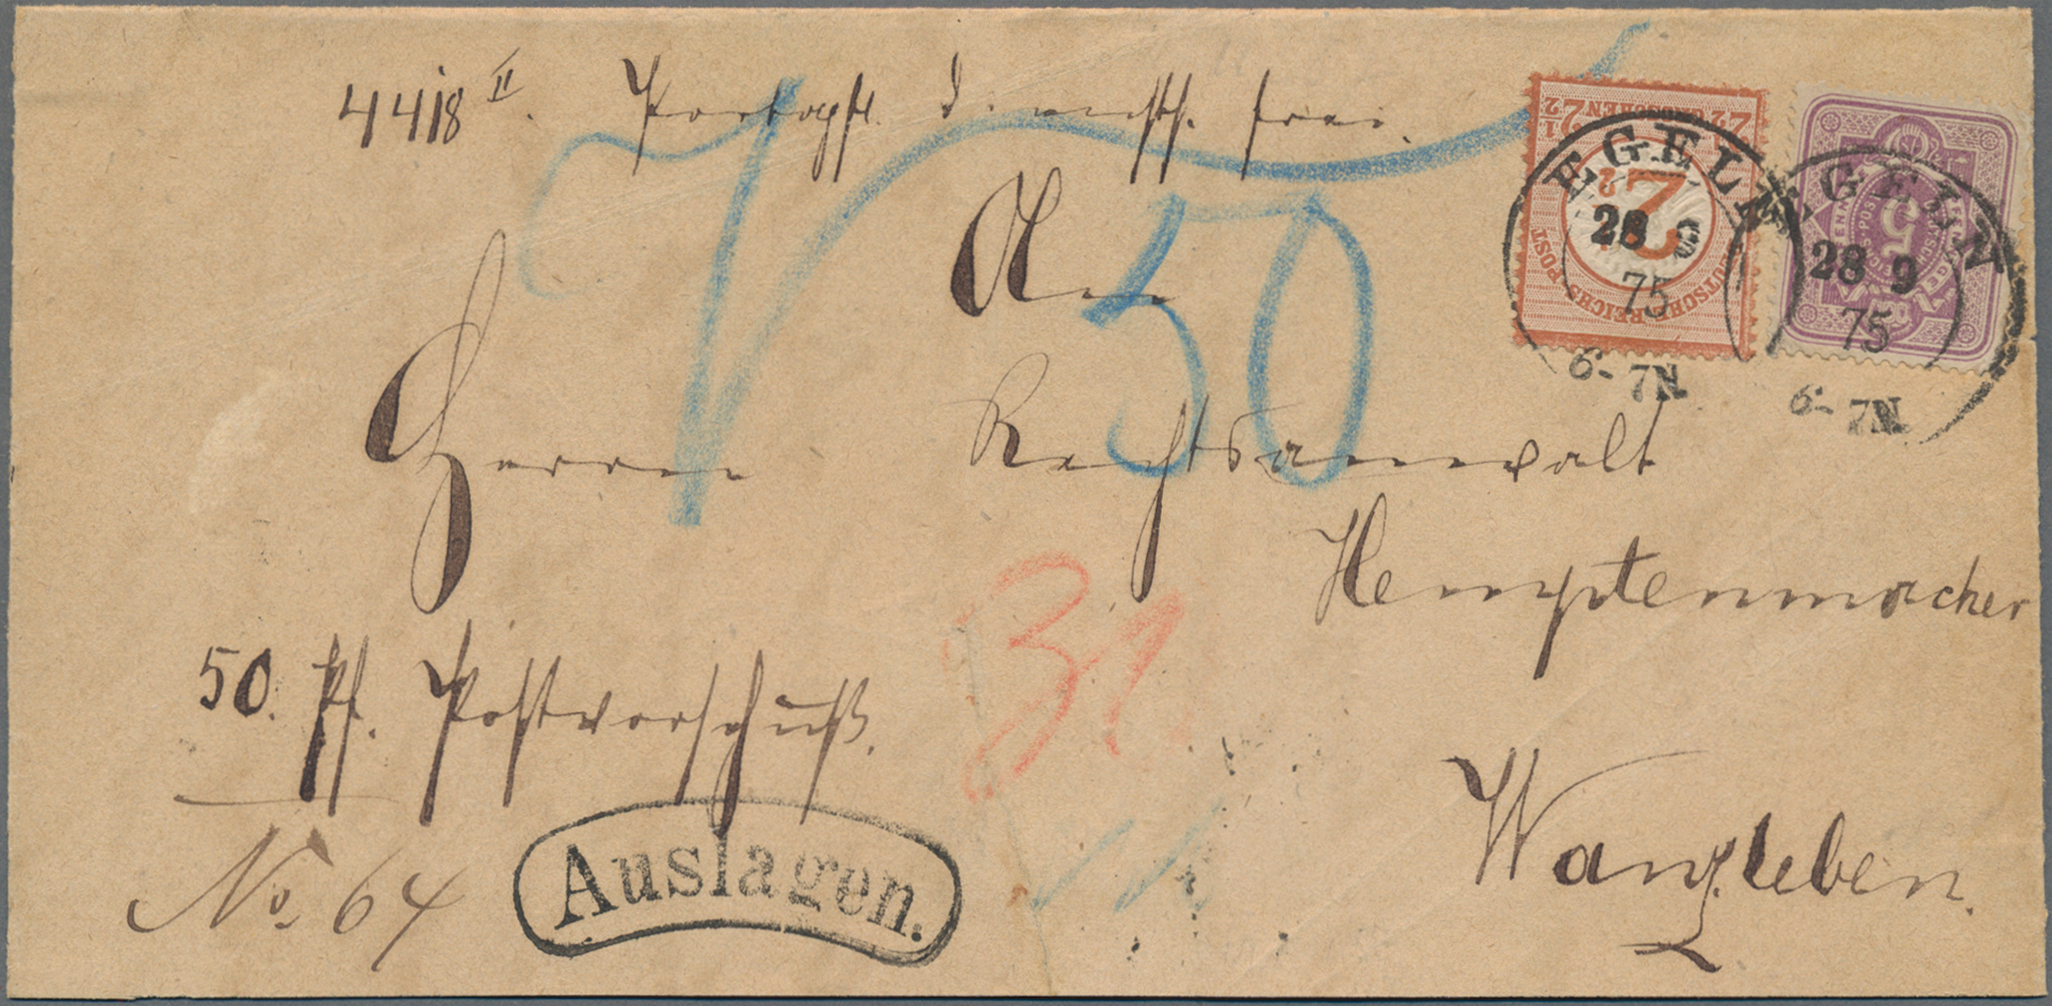 4418 II. Portopfl. d. frei.
An
Herrn Rechtsanwalt
Hemptenmacher
50. Pf. Postvorschuß.
Wanzleben.
No. 64
Auslagen.
V 50
31
2½ GROSCHEN 2½
DEUTSCHE REICHS-POST
5
EGELN
28 9
75
6-7N
EGELN
28 9
75
6-7N